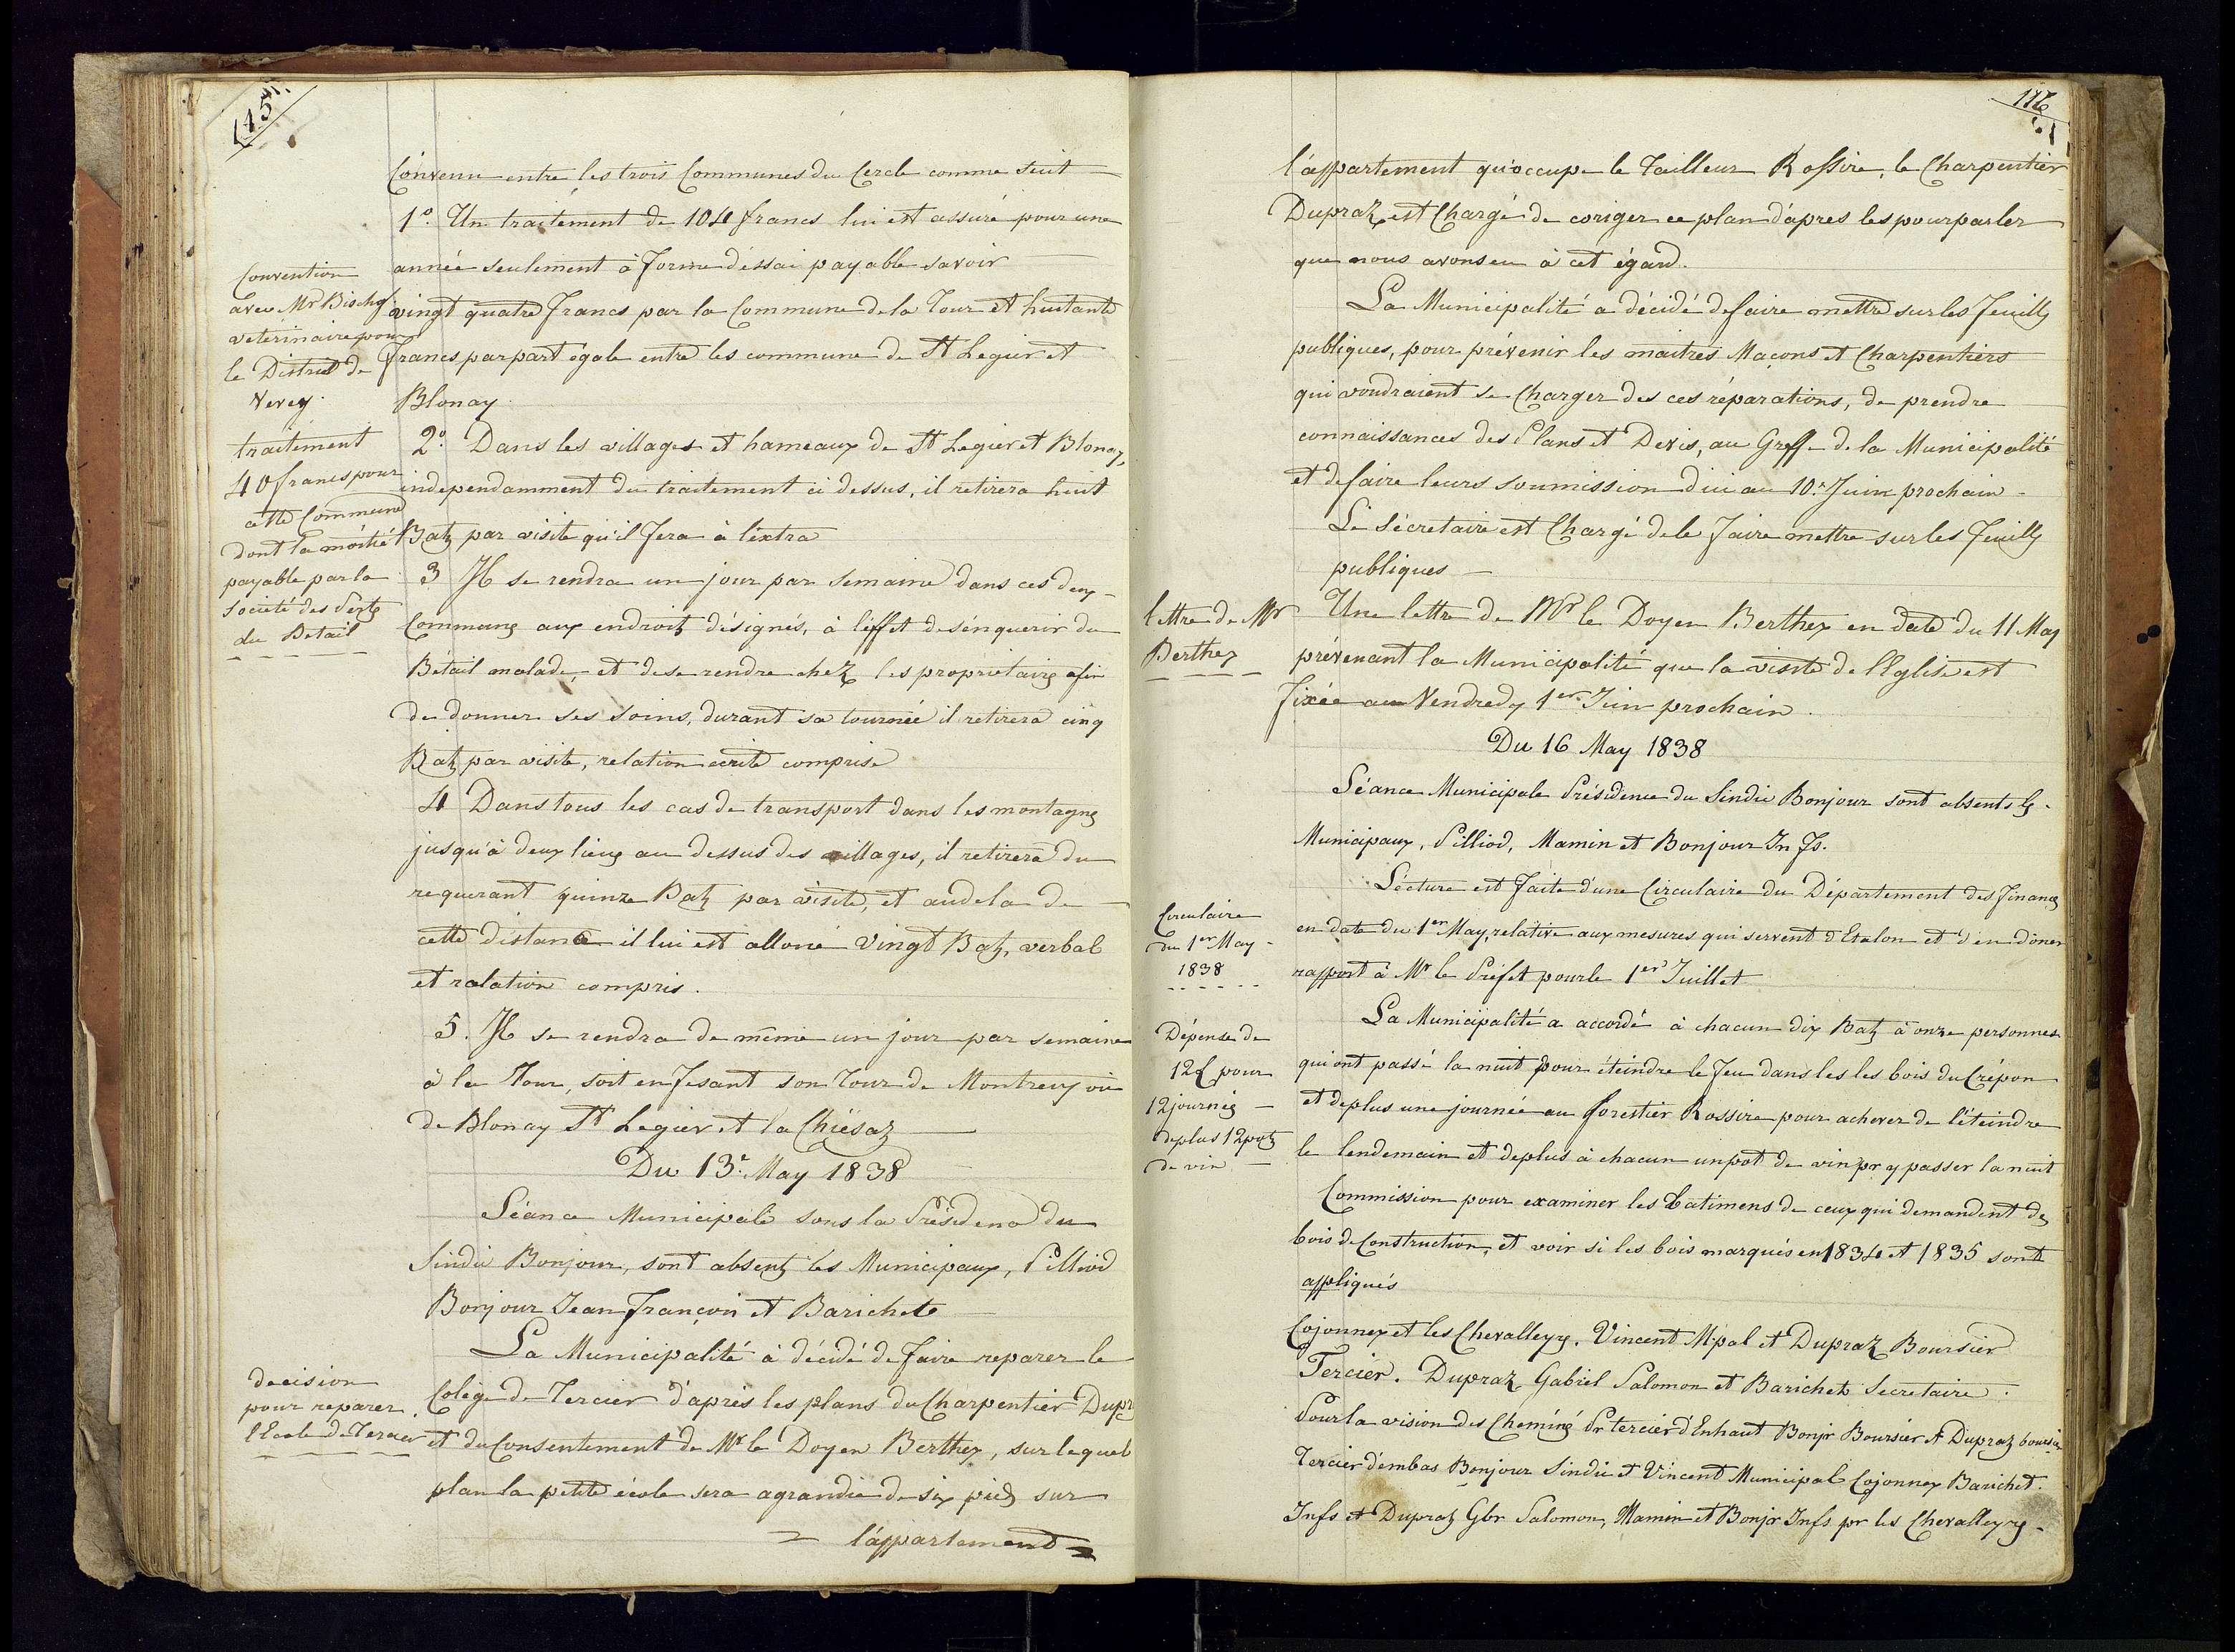 115
Convenu entre les trois Communes du Cercle comme suit
1º. Un traitement de 104 francs lui est assuré pour une
année seulement à forme d'éssai payable savoir
vingt quatre francs par la Commune de la Tour et huitante
francs par part égale entre les commune de St Legier et
Blonay.
2º. Dans les villages et hameaux de St Legier et Blonay,
independamment du traitement ci dessus, il retirera huit
Batz par visite qu'il fera à l'éxtra
3 Il se rendra un jour par semaine dans ces deux
Communes aux endroits désignés, à l'éffet de s'énquerir du
Bétail malade, et de se rendre chez les propriétaires afin
de donner ses soins, durant sa tournée il retirera cinq
Batz par visite, relation écrite comprise
4 Dans tous les cas de transport dans les montagnes
jusqu'à deux lieues au dessus des villages, il retirera du
requerant quinze Batz par visite, et audela de
cette distance il lui est alloué vingt Batz, verbal
et ralation compris.
5. Il se rendra de même un jour par semaine
à la Tour, soit en fesant son Tour de Montreux ou
de Blonay St Legier et la Chiésaz
Du 13e. May 1838
Séance Municipale sous la Présidence du
Sindic Bonjour, sont absents les Municipaux, Pilliod
Bonjour Jean François et Barichet
La Municipalité à décidé de faire reparer le
Colége de Tercier d'aprés les plans du Charpentier Dupr
et du Consentement de Mr le Doyen Berthex, sur lequel
plan la petite école sera agrandie de six pieds sur
= l'appartement =
Convention
avec Mr Bischof
veterinaire pour
le District de
Vevey.
traitement
40 francs pour
cette Commune
dont la moitié
payable par la
societé des Pertes
du Betail
decision
pour reparer
l'Ecole de Tercier
116
l'appartement qu'occupe le Tailleur Rossire, le Charpentier
Dupraz est Chargé de coriger ce plan d'apres les pourparler
que nous avons eu à cet égard.
La Municipalité a décidé de faire mettre sur les feuilles
publiques, pour prévenir les maitres Maçons et Charpentiers
qui voudraient se Charger des ces réparations, de prendre
connaissances des Plans et Devis, au Greffe de la Municipalité
et de faire leurs soumission d'ici au 10e. Juin prochain.
Le Sécretaire est Chargé de le faire mettre sur les feuilles
publiques
Une lettre de Mr le Doyen Berthex en date du 11 May
prévenant la Municipalité que la visite de l'Eglise est
fixée au Vendredy 1er Juin prochain.
Du 16 May 1838
Séance Municipale Présidence du Sindic Bonjour sont absents les
Municipaux, Pilliod, Mamin et Bonjour Jn Fs.
Lécture est faite d'une Circulaire du Département des finances
en date du 1er May, relative aux mesures qui servent d'Etalon et d'en doner
rapport à Mr le Préfet pour le 1er Juillet
La Municipalité a accordé à chacun dix Batz à onze personnes
qui ont passé la nuit pour éteindre le feu dans les les bois du Crépon
et de plus une journée au forestier Rossire pour achever de l'éteindre
le lendemain et de plus à chacun un pot de vin pr y passer la nuit
Commission pour examiner les batimens de ceux qui demandent des
bois de Construction, et voir si les bois marqués en 1834 et 1835 sont
appliqués
Cojonnex et les Chevalleyres. Vincent M.pal et Dupraz Boursier
Tercier. Dupraz Gabriel Salomon et Barichet Secretaire.
Pour la vision des Cheminés Pr Tercier d'Enhaut Bonjr Boursier et Dupraz boursier
Tercier d'embas Bonjour Sindic et Vincent Municipal Cojonnex Barichet
Jnfs et Dupraz Gbr Salomon, Mamin et Bonjr Jnfs pr les Chevalleyres.
lettre de Mr
Berthex
Circulaire
du 1er May
1838
Dépense de
12 £ pour
12 journées
de plus 12 pots
de vin